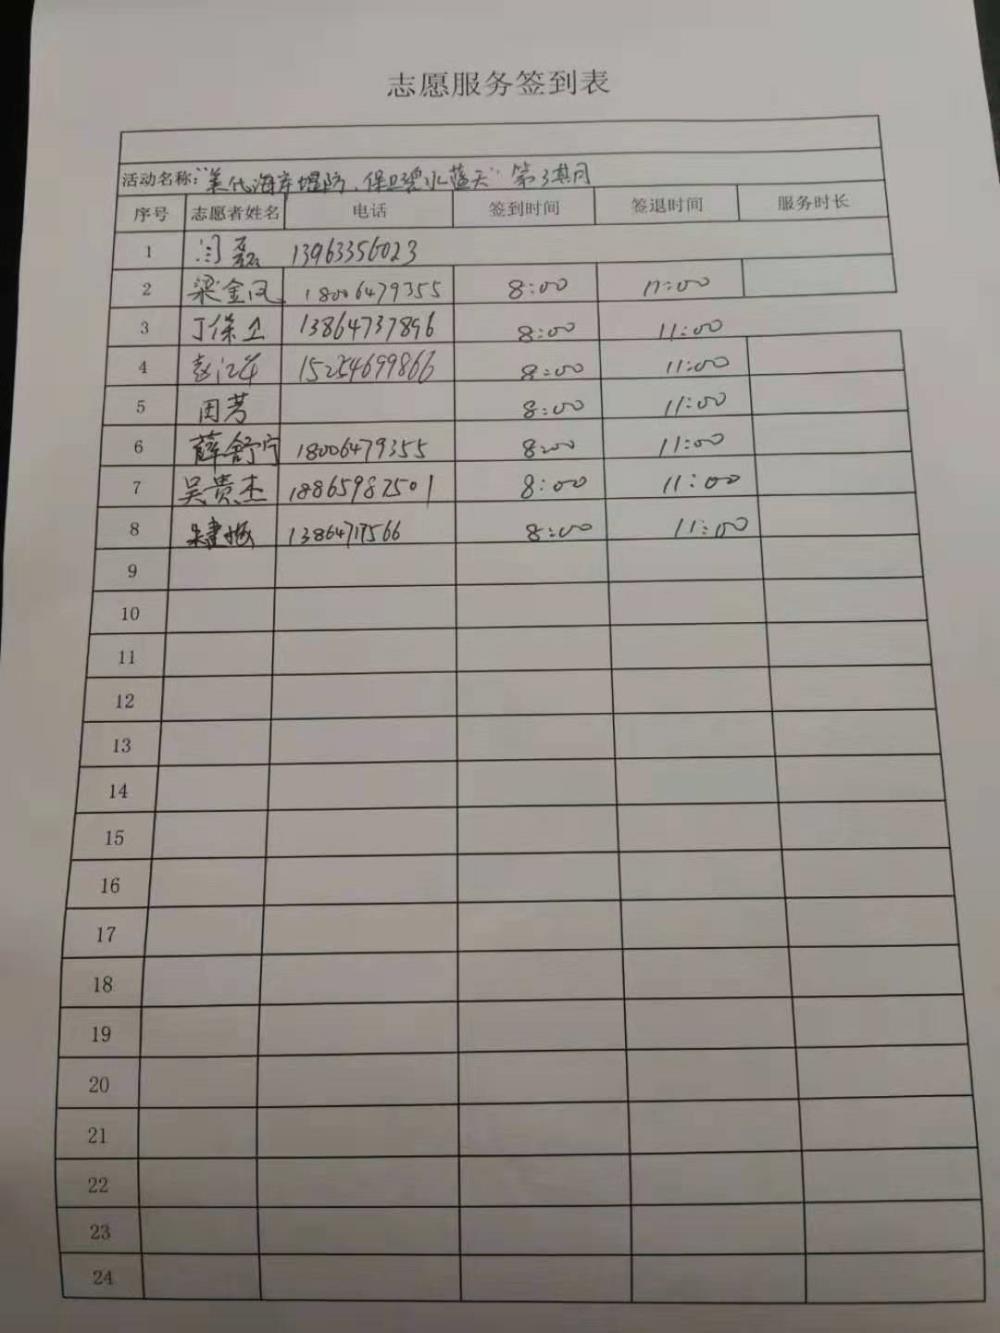 志愿服务签到表
活动名称："美化海岸堤防、保卫碧水蓝天"第3期
序号 志愿者姓名 电话 签到时间 签退时间 服务时长
1 闫磊 13963356023
2 梁金凤 18006479355 8:00 11:00
3 丁保卫 13864737896 8:00 11:00
4 15254699866 8:00 11:00
5 田芳 8:00 11:00
6 薛舒宁 18006479355 8:00 11:00
7 吴贵杰 18865982501 8:00 11:00
8 8:00 11:00
9
10
11
12
13
14
15
16
17
18
19
20
21
22
23
24